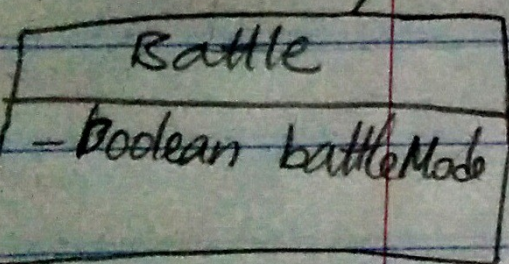 Battle
- Boolean battleMode